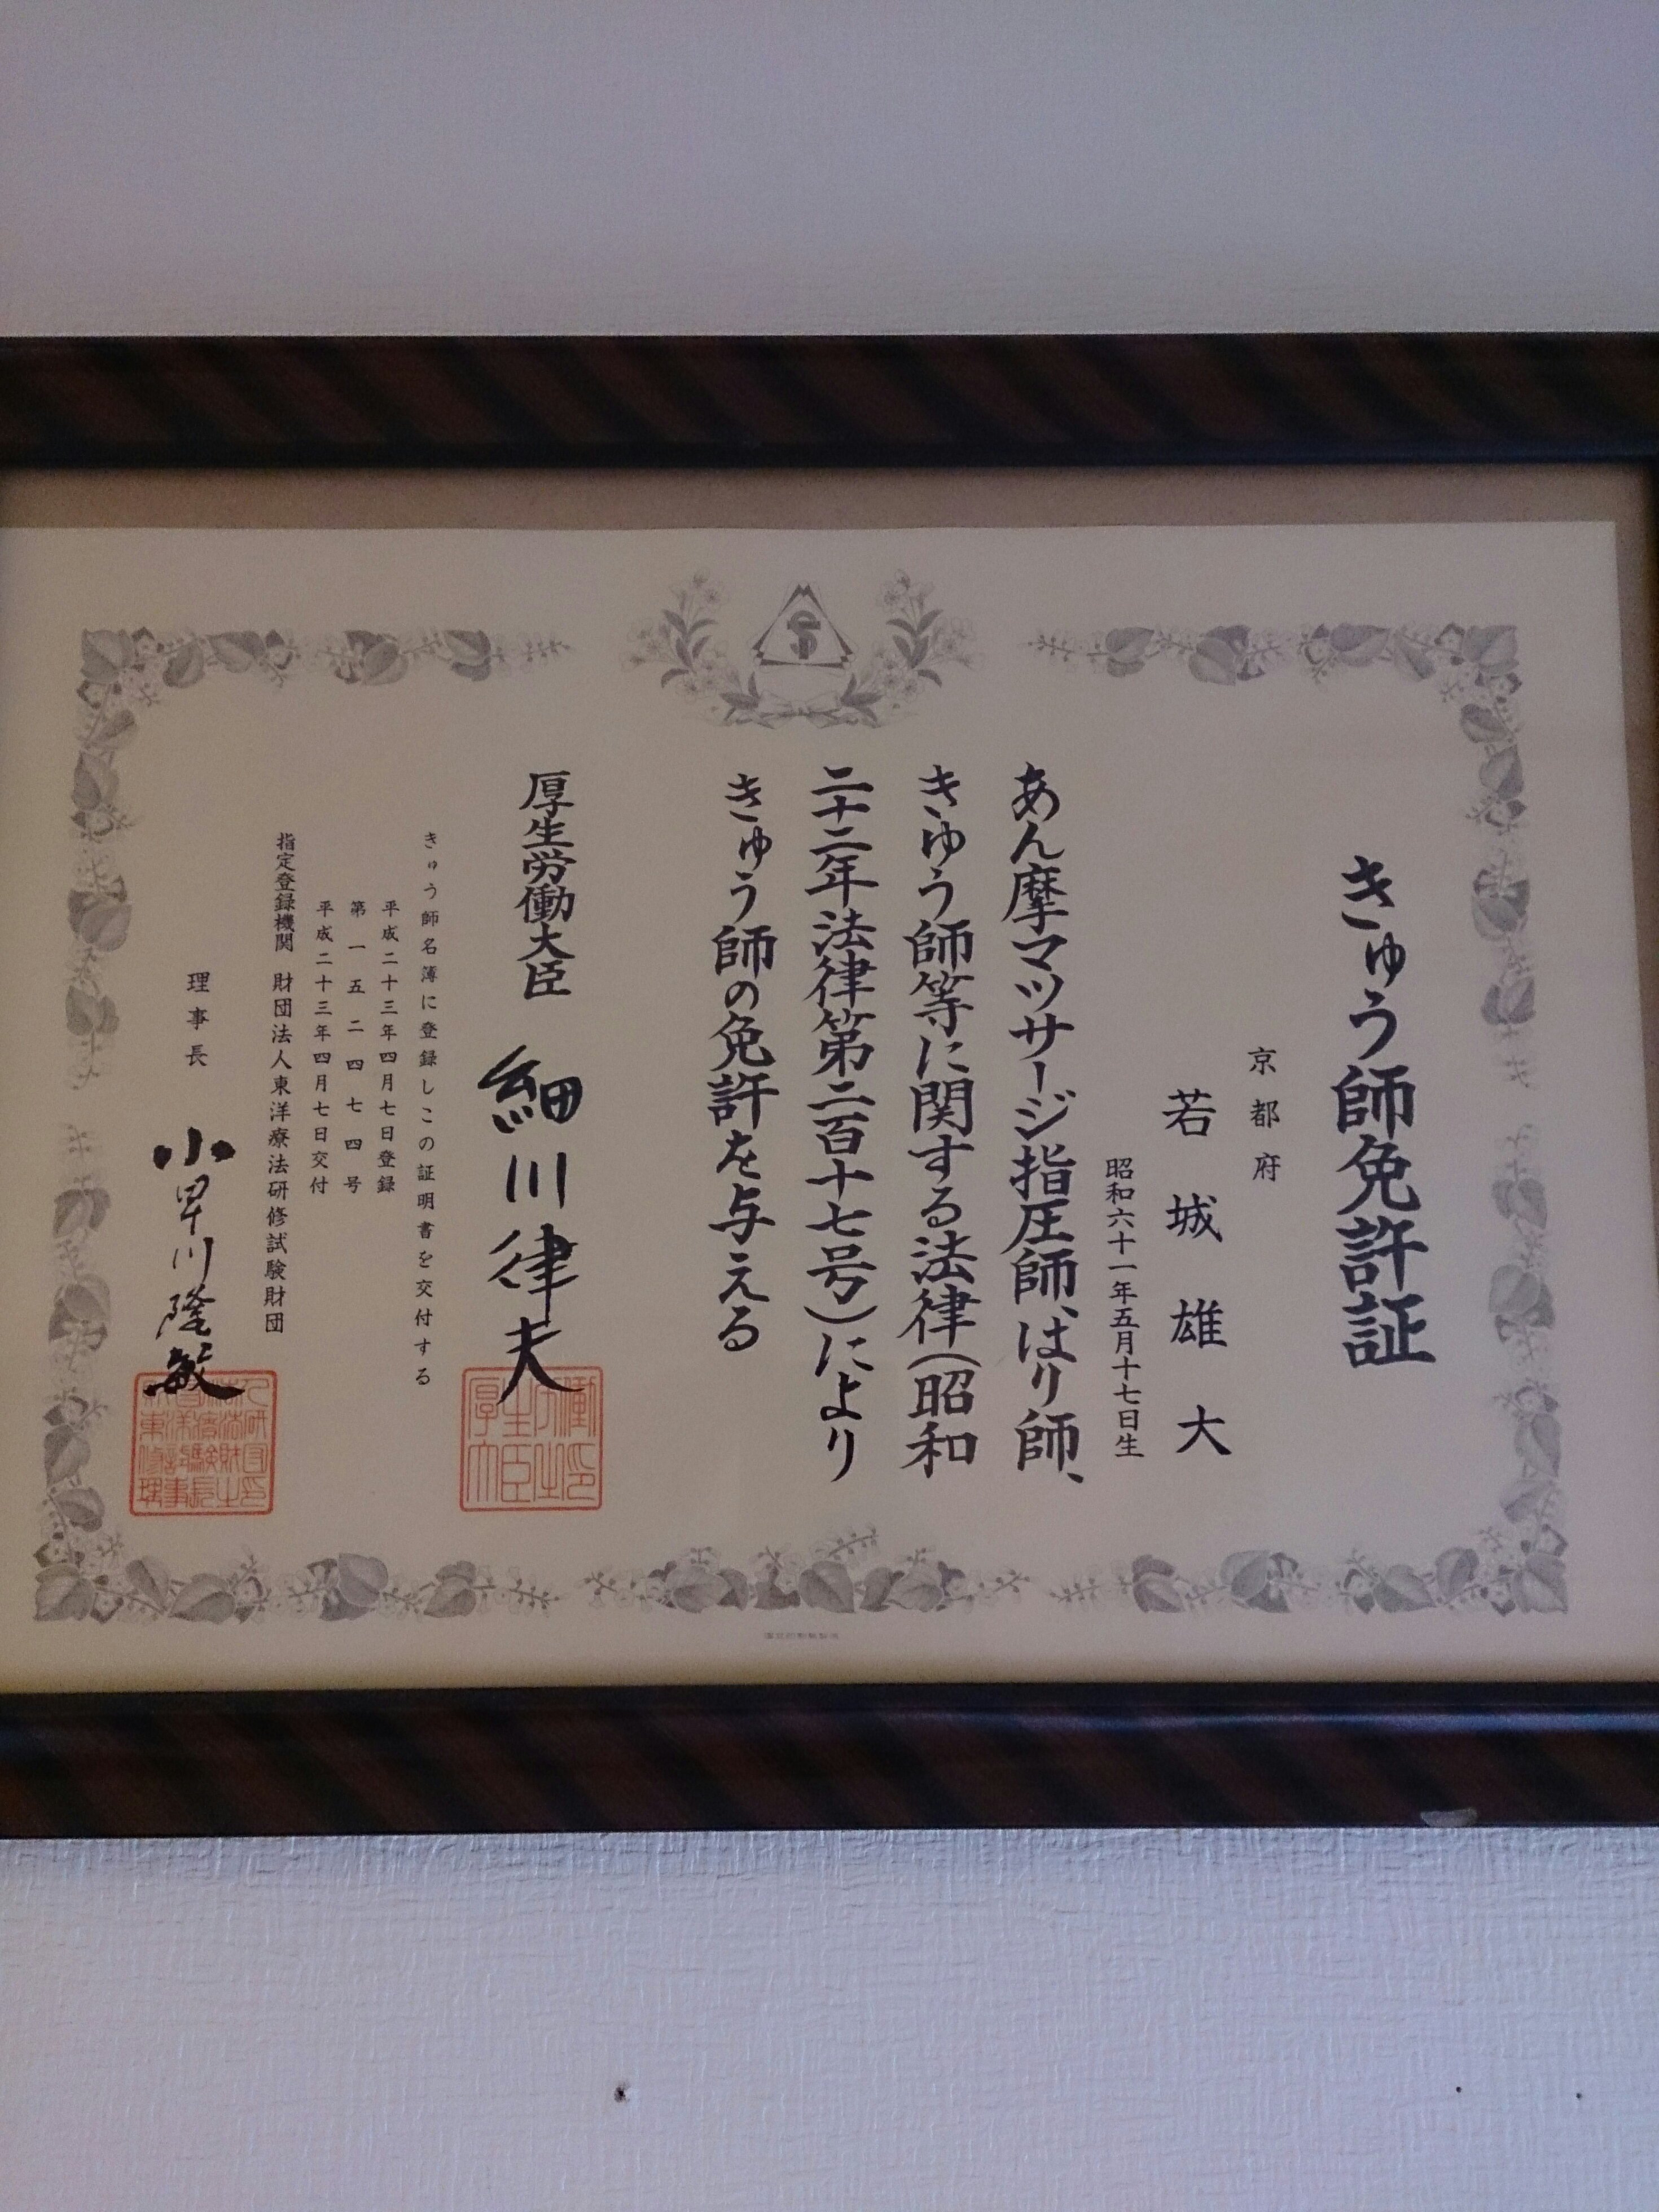 きゅう師免許証
京都府
若城雄大
昭和六十一年五月十七日生
あん摩マッサージ指圧師、はり師、
きゅう師等に関する法律(昭和
二十二年法律第二百十七号)により
きゅう師の免許を与える
厚生労働大臣 細川律夫
きゅう師名簿に登録しこの証明書を交付する
平成二十三年四月七日登録
第一五二四七四号
平成二十三年四月七日交付
指定登録機関 財団法人東洋療法研修試験財団
理事長 小早川隆敏